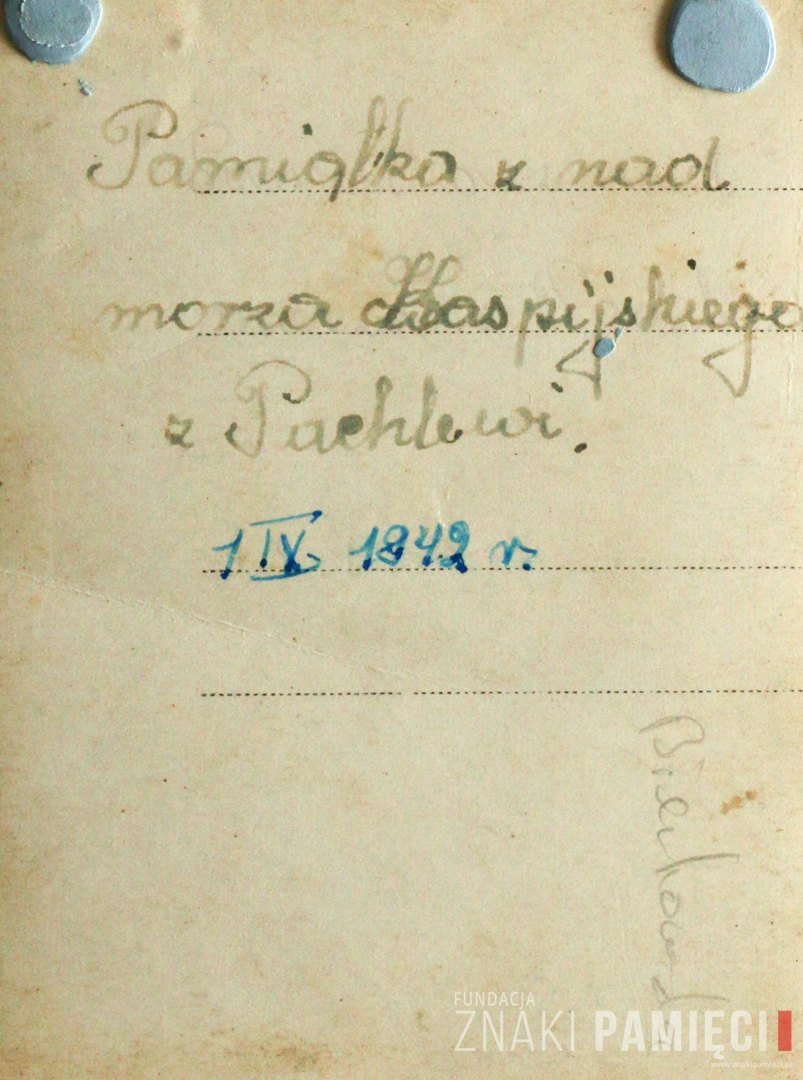 Pamiątka z nad
morza Kaspijskiego
z Pachlewi.
1 IX 1942 r.
FUNDACJA
ZNAKI PAMIĘCI
www.znakipamieci.pl